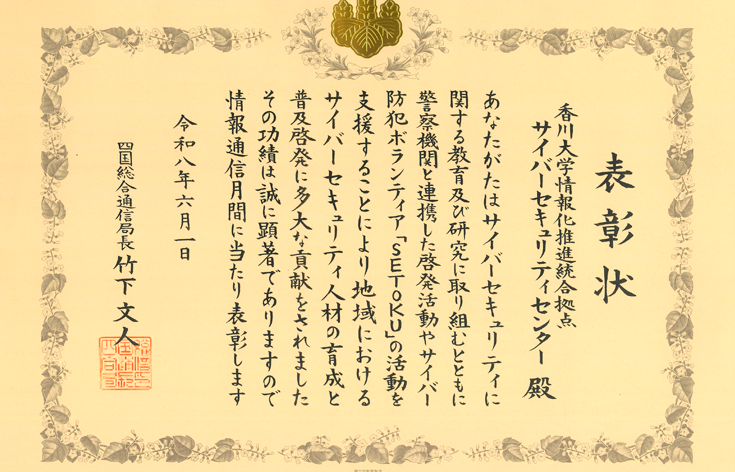 表彰状
香川大学情報化推進統合拠点
サイバーセキュリティセンター 殿
あなたがたはサイバーセキュリティに
関する教育及び研究に取り組むとともに
警察機関と連携した啓発活動やサイバー
防犯ボランティア「SETOKU」の活動を
支援することにより地域における
サイバーセキュリティ人材の育成と
普及啓発に多大な貢献をされました
その功績は誠に顕著でありますので
情報通信月間に当たり表彰します
令和八年六月一日
四国総合通信局長 竹下文人